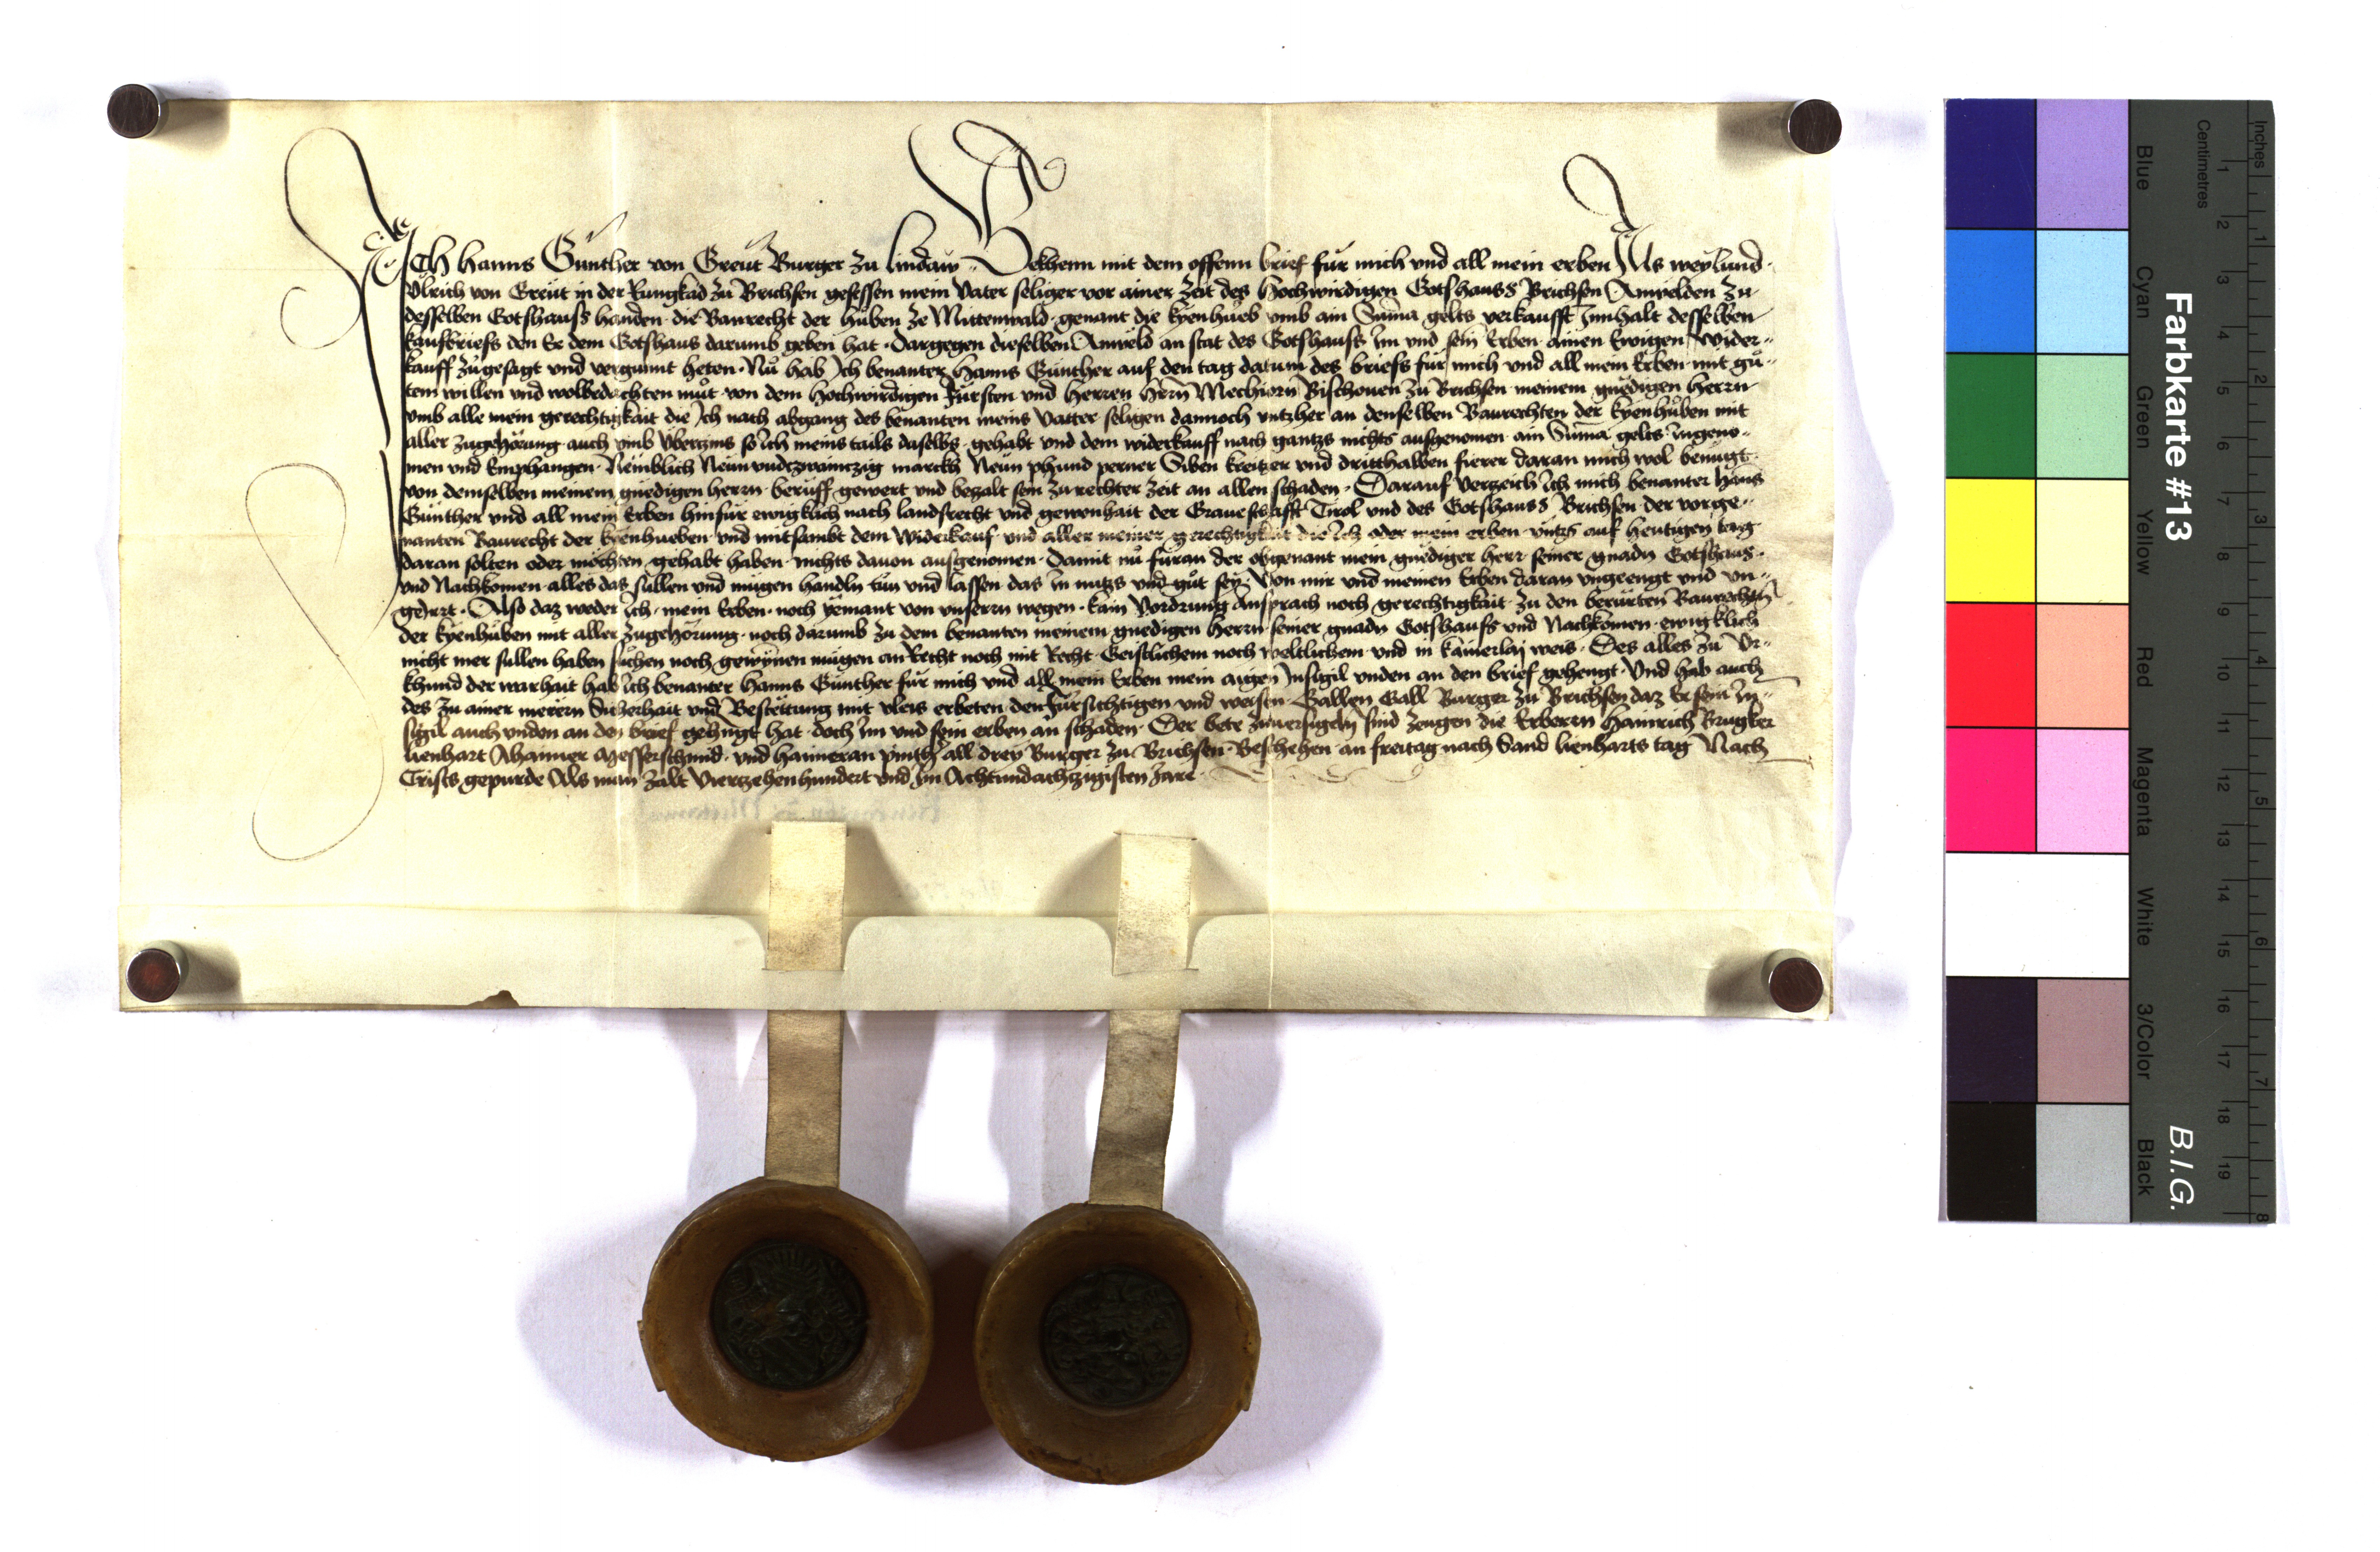 ICh Hanns Günther von Greut Burger zu lindaw Bekhenn mit dem offenn brief für mich vnd all mein erben Als weylund
Vlrich von Greut in der Rungkad zu Brichsen gesessen mein Vater seliger vor ainer zeit des Hochwirdigen Gotshauss Brichsen Anwelden zu
desselben Gotshauss handen die Baurecht der hůben ze Mittenwald genant die kyenhueb vmb ain Suma gelts verkaufft Innhalt desselben
kaufbriefs den Er dem Gotshaus darumb geben hat Dargegen dieselben Anweld an stat des Gotshauss Im vnd sein Erben ainen Ewigen Wider-
kauff zůgesagt vnd vergunnt heten Nů hab Ich benanter Hanns Günther auf den tag datum des briefs für mich vnd all mein Erben mit gů-
tem willen vnd wolbedachten můt von dem Hochwirdigen Fürsten vnd Herren Hrn Mechiorn Bischouen zu Brichsen meinem gnedigen Herrn
vmb alle mein gerechtigkait die Ich nach abgang des benanten meins Vatter seligen dannoch vntzher an denselben Baurechten der kyenhůben mit
aller zugehörung auch vmb Vberzins so Ich meins tails daselbs gehabt vnd dem widerkauff nach gantzs nichts ausgenomen ain Suma gelts Ingeno-
men vnd Emphangen Nemblich Neun vndtzwaintzig marckh Neun phund perner Siben kreitzer vnd dritthalben fierer daran mich wol benügt
von demselben meinem gnedigen herrn beruff gewert vnd bezalt sein zu rechter zeit an allen schaden Darauf Verzeich Ich mich benanter Hans
Günther vnd all mein Erben hinfür ewigklich nach landsrecht vnd gewonhait der Graueschafft Tirol vnd des Gotshauss Brichsen der vorge-
nanten Baurecht der kyenhueben vnd mitsambt dem Widerkauf vnd aller meiner gerechtigkait die Ich oder mein erben vntzs auf heutigen tag
daran solten oder möchten gehabt haben nichts dauon ausgenomen Damit nů füran der obgenant mein gnediger herr seiner gnadn Gotshaus
vnd Nachkomen alles das sullen vnd mügen handln tün vnd lassen das In nutzs vnd gůt sey Von mir vnd meinen Erben daran vngeengt vnd vn-
geirrt Also daz weder Ich mein Erben noch yemant von vnsern wegen kain Vordrung Ansprach noch gerechtigkait zu den berürten Baurechtn
der kyenhuben mit aller zugehörung noch darumb zu dem benanten meinem gnedigen Herrn seiner gnadn Gotshauss vnd Nachkomen ewigklich
nicht mer sullen haben sůchen noch gewynnen mügen an Recht noch mit Recht Geistlichem noch weltlichem vnd in kainerlaj weis Des alles zu Vr-
khund der warhait hab Ich benanter Hanns Günther für mich vnd all mein Erben mein aigen Insigil vnden an den brief gehengt Vnd hab auch
des zu ainer merern Sicherhait vnd Bestettung mit vleis erbeten den Fürsichtigen vnd weisen Gallen Gall Burger zu Brichsen daz Er sein In-
sigil auch vnden an den brief gehengt hat doch Im vnd sein erben an schaden Der bete zuuersigeln sind zeugen die Erbern Hainrich Brugker
lienhart messerschmid vnd haimeran all drey Burger zu Brichsen Beschehen an freitag nach Sand lienharts tag Nach
Crists gepurde Als man zalt Viertzehenhundert vnd Im Achtundachtzigisten Jare
Farbkarte #13
B.I.G.
Blue Cyan Green Yellow Red Magenta White 3/Color Black
Centimetres 1 2 3 4 5 6 7 8 9 10 11 12 13 14 15 16 17 18 19
Inches 1 2 3 4 5 6 7 8